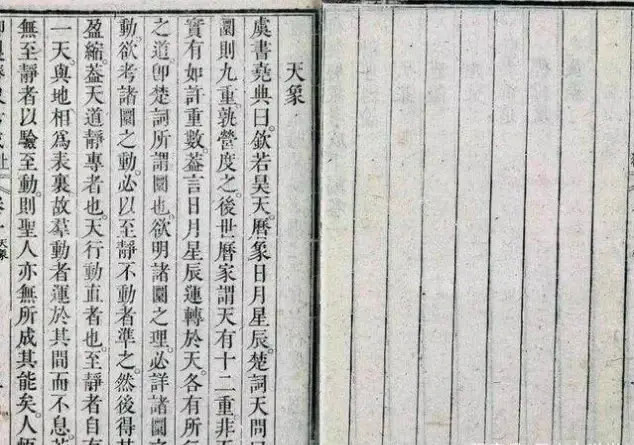 天象
虞書堯典曰。欽若昊天。曆象日月星辰。楚詞天問曰
圜則九重。孰營度之。後世曆家謂天有十二重。非
實有如許重數。葢言日月星辰運轉於天。各有所
之道。卽楚詞所謂圜也。欲明諸圜之理。必詳諸圜
動。欲考諸圜之動。必以至靜不動者準之。然後得
盈縮。葢天道靜專者也。天行動直者也。至靜者自有
一天。與地相為表裏。故羣動者運於其間而不息。
無至靜者以驗至動。則聖人亦無所成其能矣。人
天象